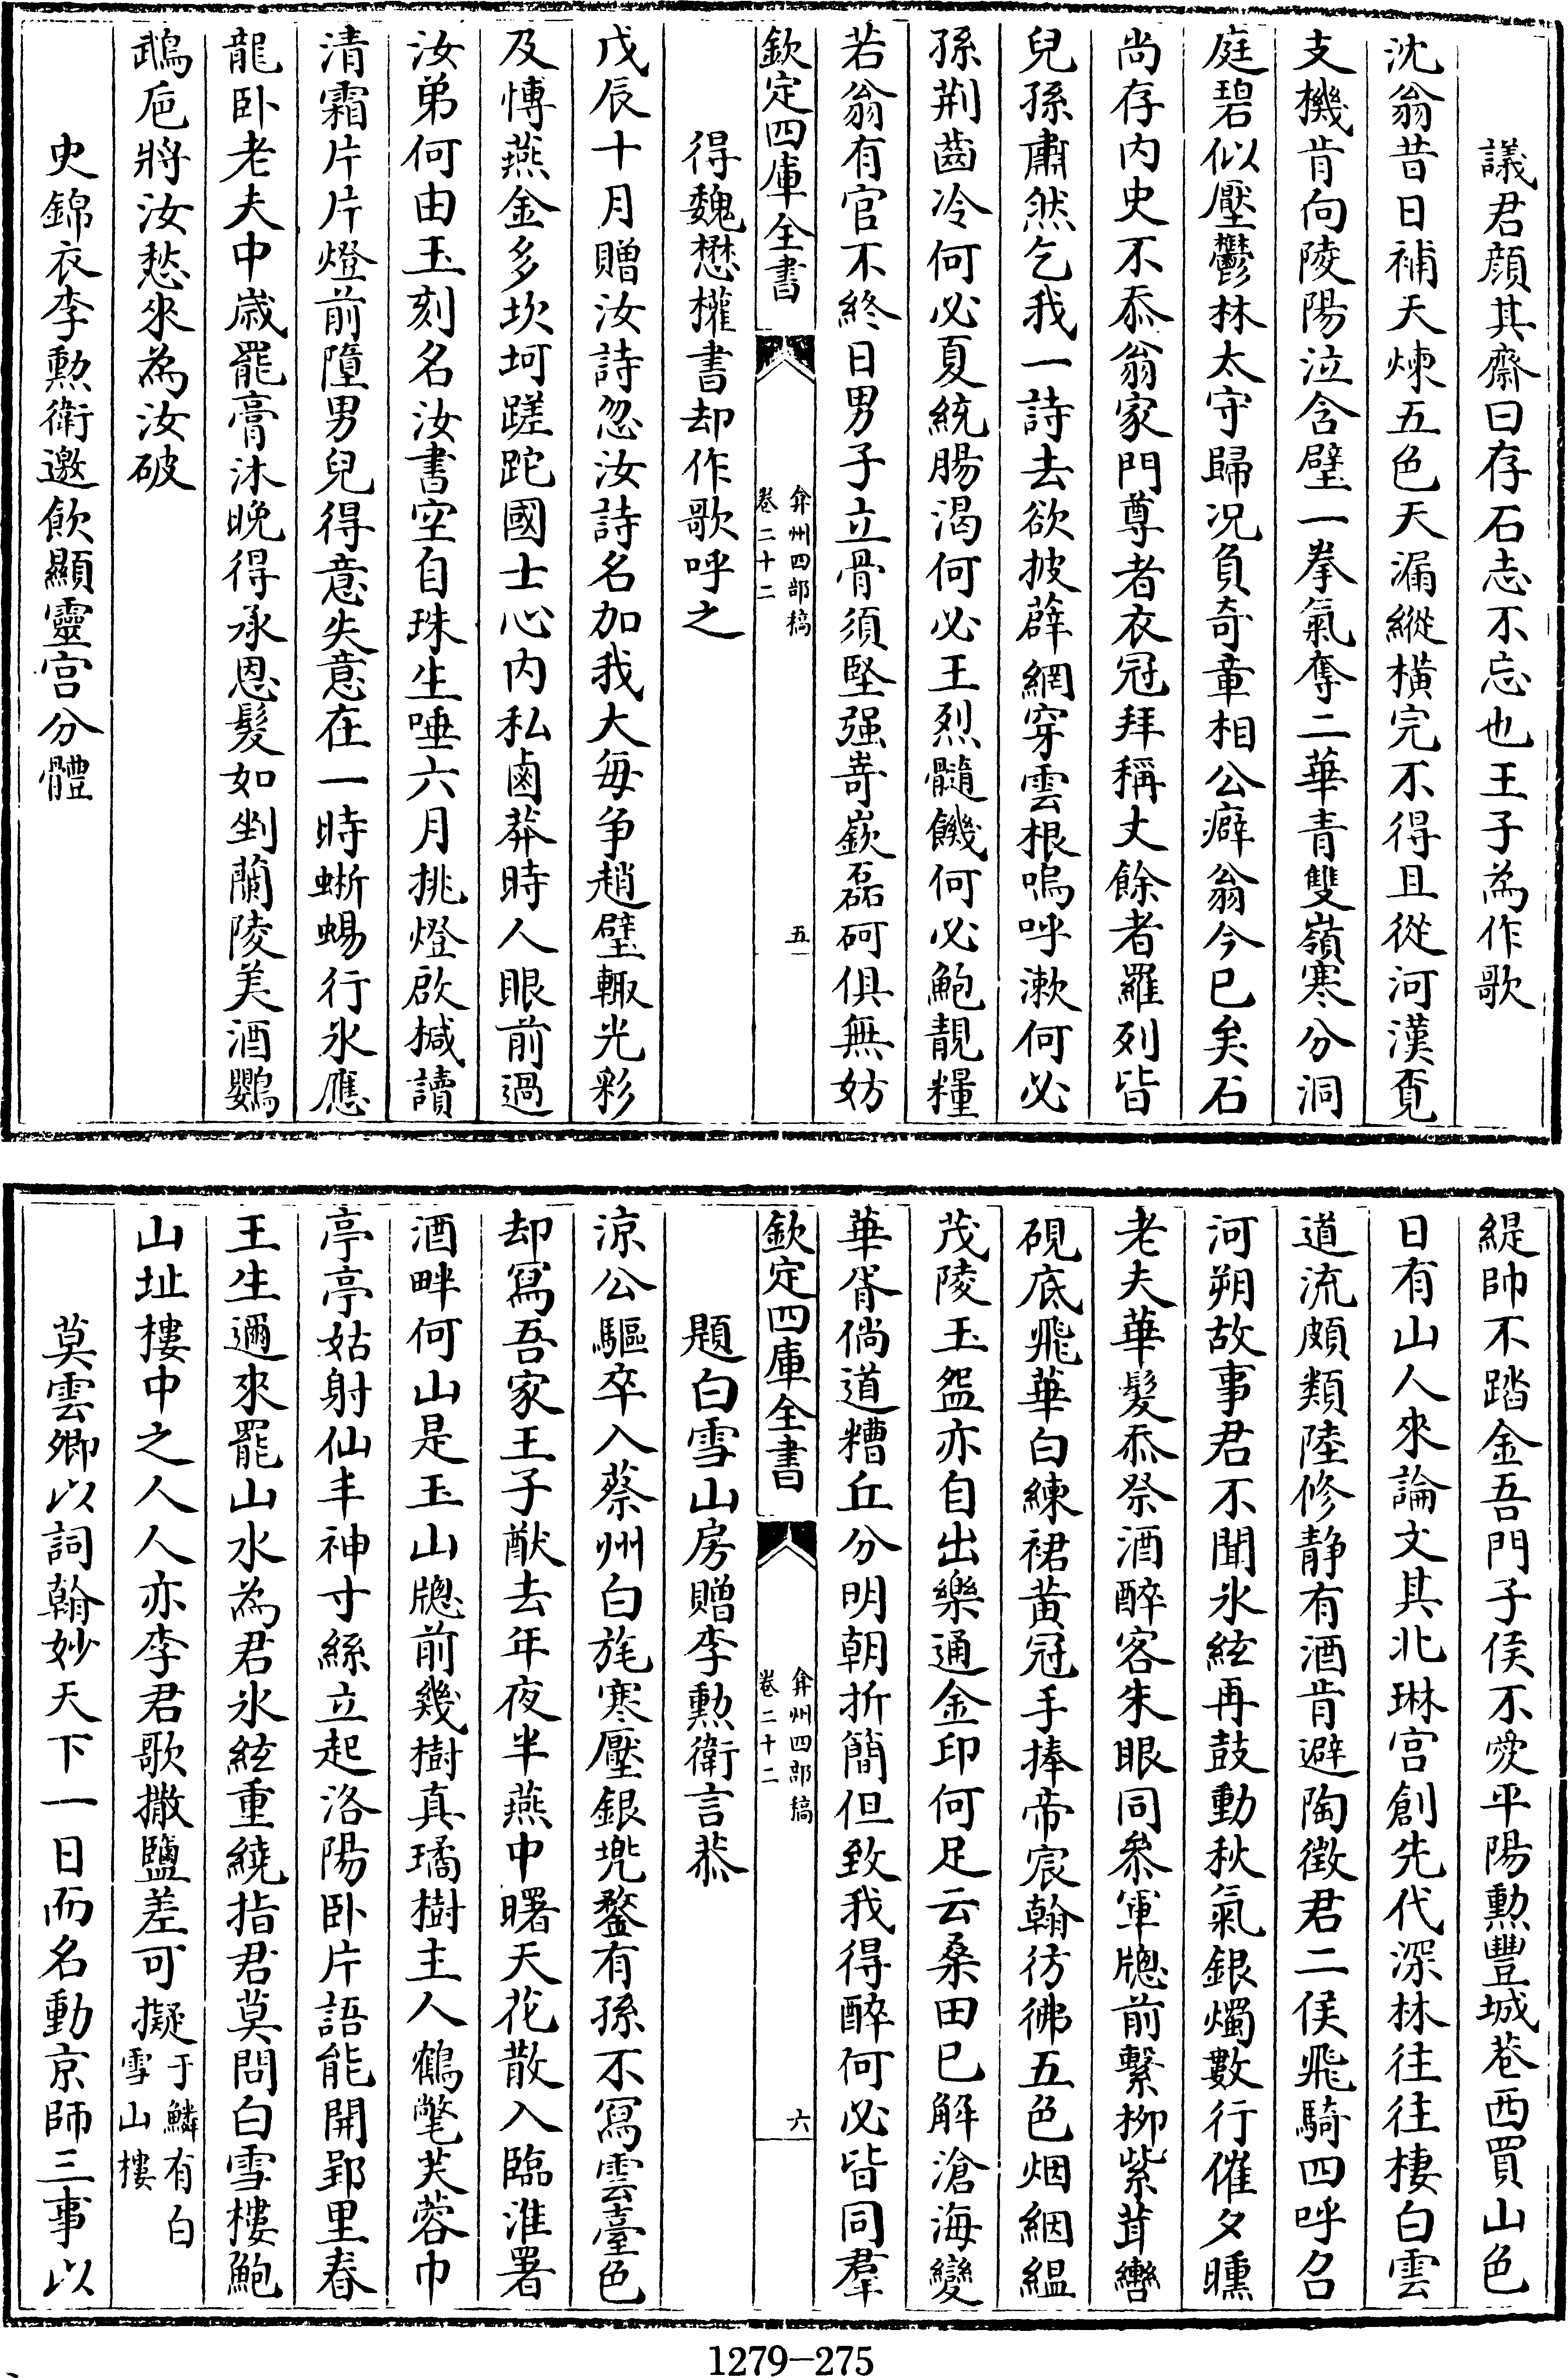 議君顔其齋曰存石志不忘也王子為作歌
沈翁昔日補天煉五色天漏縱橫完不得且從河漢覔
支機肯向陵陽泣含璧一拳氣奪二華青雙嶺寒分洞
庭碧似壓鬱林太守歸况負奇章相公癖翁今已矣石
尚存内史不忝翁家門尊者衣冠拜稱丈餘者羅列皆
兒孫肅然乞我一詩去欲披薜網穿雲根嗚呼漱何必
孫荆齒冷何必夏統腸渴何必王烈髓饑何必鮑靚糧
若翁有官不終日男子立骨須堅强嵜嶔磊砢俱無妨
欽定四庫全書
弇州四部稿
卷二十二
五
得魏懋權書却作歌呼之
戊辰十月贈汝詩忽汝詩名加我大每争趙璧輙光彩
及愽燕金多坎坷蹉跎國士心内私鹵莽時人眼前過
汝弟何由玉刻名汝書空自珠生唾六月挑燈啟椷讀
清霜片片燈前墮男兒得意失意在一時蜥蜴行氷應
龍卧老夫中歲罷膏沐晚得承恩髮如剉蘭陵美酒鸚
鵡巵將汝愁來為汝破
史錦衣李勲衛邀飲顯靈宫分體
緹帥不踏金吾門子侯不愛平陽勲豐城巷西買山色
日有山人來論文其北琳宫創先代深林往往棲白雲
道流頗類陸修静有酒肯避陶徵君二侯飛騎四呼召
河朔故事君不聞氷絃再鼓動秋氣銀燭數行催夕曛
老夫華髮忝祭酒醉客朱眼同參軍牕前繫柳紫茸轡
硯底飛華白練裙黄冠手捧帝宸翰彷彿五色烟絪緼
茂陵玉盌亦自出樂通金印何足云桑田已解滄海變
華胥倘道糟丘分明朝折簡但致我得醉何必皆同羣
欽定四庫全書
弇州四部稿
卷二十二
六
題白雪山房贈李勲衛言恭
涼公驅卒入蔡州白旄寒壓銀兠鍪有孫不寫雲臺色
却寫吾家王子猷去年夜半燕中曙天花散入臨淮署
酒畔何山是玉山牕前幾樹真璚樹主人鶴氅芙蓉巾
亭亭姑射仙丰神寸絲立起洛陽卧片語能開郢里春
王生邇來罷山水為君氷絃重繞指君莫問白雪樓鮑
山址樓中之人人亦李君歌撒鹽差可擬于鱗有白
雪山樓
莫雲卿以詞翰妙天下一日而名動京師三事以
1279-275